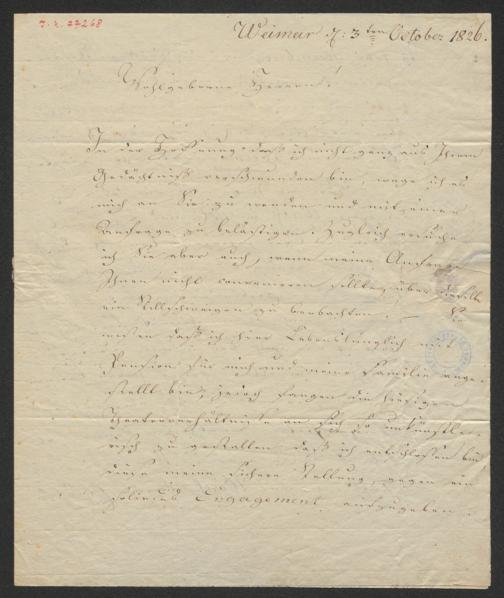 J. N. 27268
Weimar d: 3ten October 1826.
Wohlgeborne Herren!
In der Hoffnung daß ich nicht ganz aus Ihrem
Gedächtniß verschwunden bin, wage ich es
mich an Sie zu wenden und mit einer
Anfrage zu belästigen. Zugleich ersuche
ich Sie aber auch, wenn meine Anfrage
Ihnen nicht conveniren sollte, über dieselbe
ein Stillschweigen zu beobachten. — Sie
wissen daß ich hier Lebenslänglich mit
Pension für mich und meine Familie ange-
stellt bin, jedoch fangen die hiesigen
Theaterverhältnisse an sich so unkünstle-
risch zu gestalten daß ich entschlossen bin
diese meine sichere Stellung, gegen ein
solides Engagement aufzugeben.